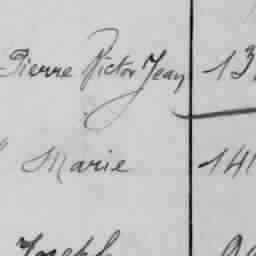 Pierre Victor Jean 13
" Marie 14
Joseph